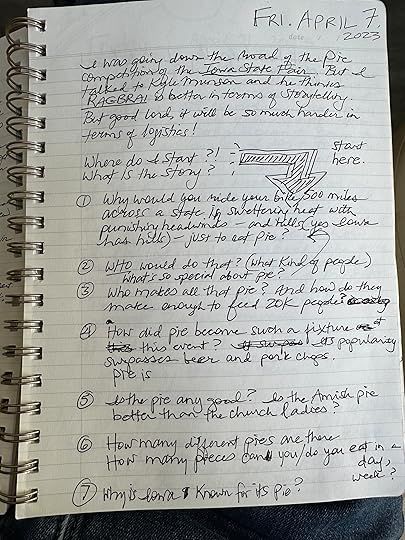 FRI. APRIL 7.
date 2023
I was going down the road of the Pie
competition of the Iowa State Fair. But I
talked to Kyle Munson and he thinks
RAGBRAI is better in terms of storytelling.
But good lord, it will be so much harder in
terms of logistics!
Where do I start?! start
What is the story? here.
① Why would you ride your bike 500 miles
across a state in sweltering heat with
punishing headwinds – and hills (yes Iowa
has hills) – just to eat pie?
② WHO would do that? (What kind of people)
What's so special about pie?
③ Who makes all that pie? And how do they
make enough to feed 20K people?
④ How did pie become such a fixture at
this event? Its popularity
surpasses beer and pork chops.
pie is
⑤ Is the pie any good? Is the Amish pie
better than the church ladies?
⑥ How many different pies are there
How many pieces can you/do you eat in a
day,
week?
⑦ Why is Iowa known for its pie?